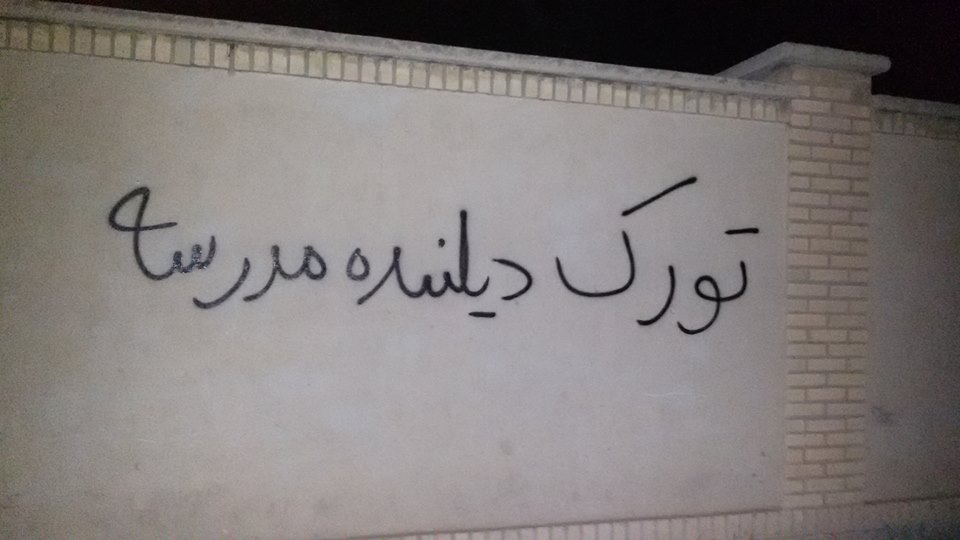 تورک دیلینده مدرسه